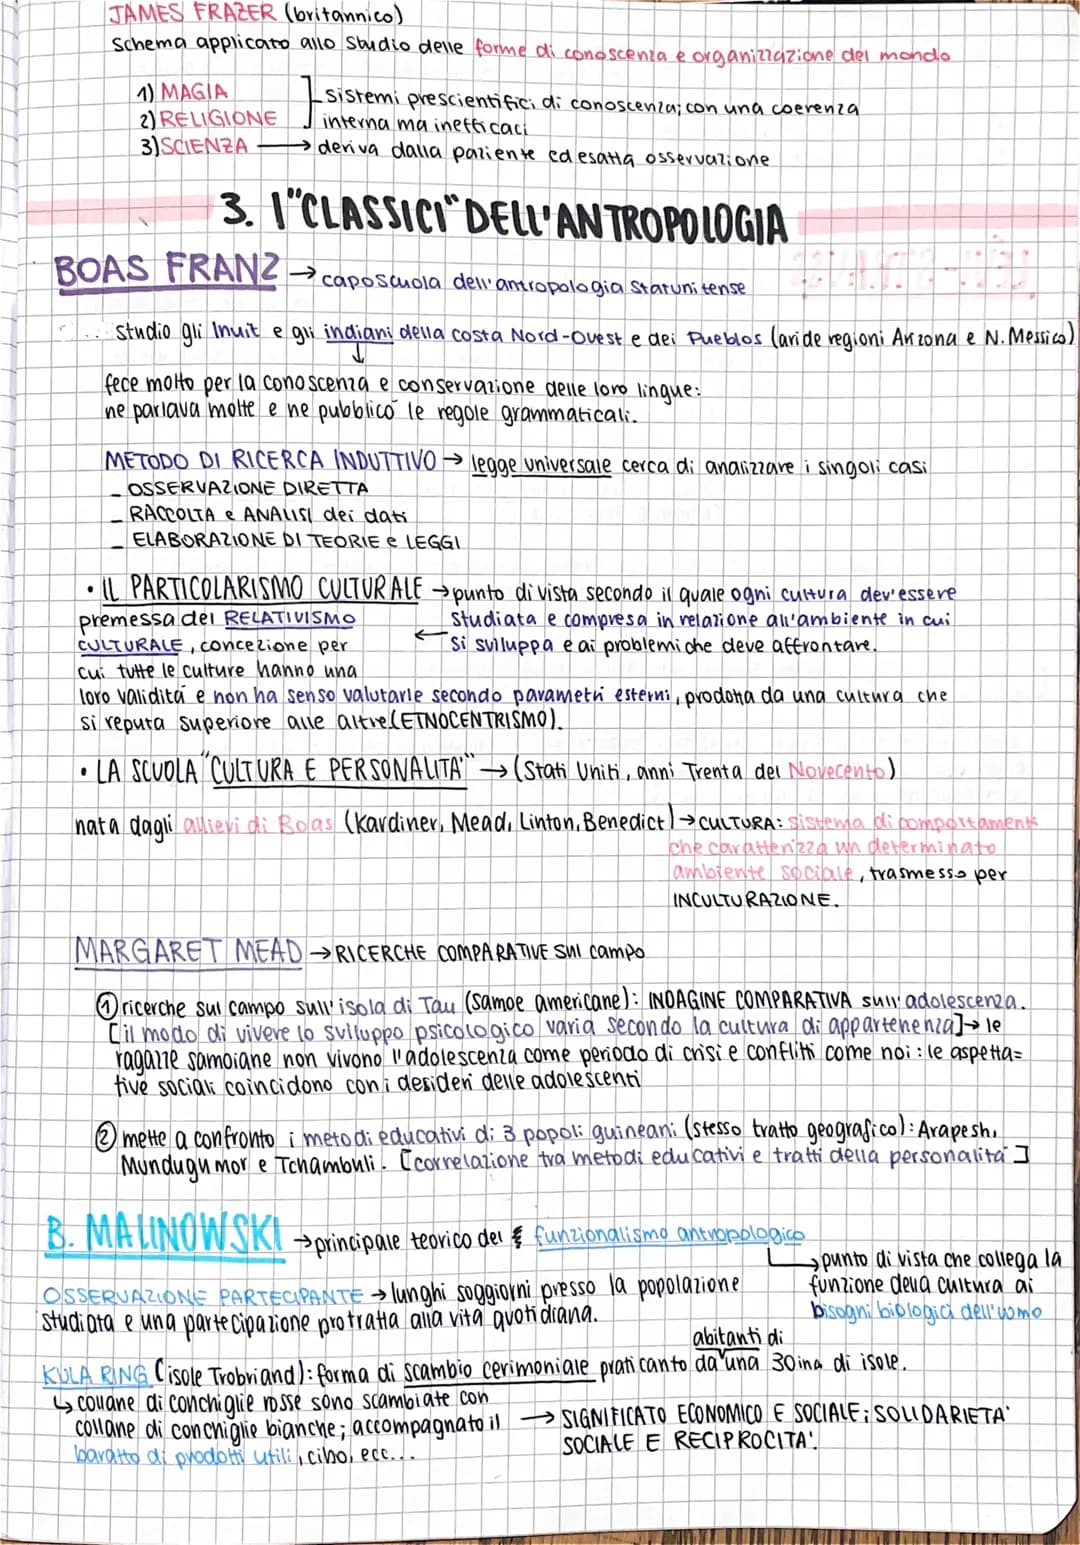 JAMES FRAZER (britannico)
Schema applicato allo studio delle forme di conoscenza e organizzazione del mondo
1) MAGIA
2) RELIGIONE
sistemi prescientifici di conoscenza; con una coerenza
interna ma inefficaci
3) SCIENZA → deriva dalla paziente ed esatta osservazione
3. I "CLASSICI" DELL'ANTROPOLOGIA
BOAS FRANZ → caposcuola dell'antropologia statunitense
studio gli Inuit e gli indiani della costa Nord-Ovest e dei Pueblos (aride regioni Arizona e N. Messico)
↓
fece molto per la conoscenza e conservazione delle loro lingue:
ne parlava molte e ne pubblicò le regole grammaticali.
METODO DI RICERCA INDUTTIVO → legge universale cerca di analizzare i singoli casi
- OSSERVAZIONE DIRETTA
- RACCOLTA e ANALISI dei dati
- ELABORAZIONE DI TEORIE e LEGGI
• IL PARTICOLARISMO CULTURALE → punto di vista secondo il quale ogni cultura dev'essere
studiata e compresa in relazione all'ambiente in cui
si sviluppa e ai problemi che deve affrontare.
←
premessa del RELATIVISMO
CULTURALE, concezione per
cui tutte le culture hanno una
loro validitá e non ha senso valutarle secondo parametri esterni, prodotta da una cultura che
si reputa superiore alle altre (ETNOCENTRISMO).
• LA SCUOLA "CULTURA E PERSONALITA'" → (Stati Uniti, anni Trenta del Novecento)
nata dagli allievi di Boas (Kardiner, Mead, Linton, Benedict) → CULTURA: sistema di comportamenti
che caratterizza un determinato
ambiente sociale, trasmesso per
INCULTURAZIONE.
MARGARET MEAD → RICERCHE COMPARATIVE sul campo
① ricerche sul campo sull'isola di Tau (Samoe americane): INDAGINE COMPARATIVA sull'adolescenza.
[il modo di vivere lo sviluppo psicologico varia secondo la cultura di appartenenza] → le
ragazze samoiane non vivono l'adolescenza come periodo di crisi e conflitti come noi: le aspetta=
tive sociali coincidono con i desideri delle adolescenti
② mette a confronto i metodi educativi di 3 popoli guineani (stesso tratto geografico): Arapesh,
Mundugumor e Tchambuli. [correlazione tra metodi educativi e tratti della personalitá]
B. MALINOWSKI → principale teorico del funzionalismo antropologico
→ punto di vista che collega la
funzione della cultura ai
bisogni biologici dell'uomo
OSSERVAZIONE PARTECIPANTE → lunghi soggiorni presso la popolazione
studiata e una partecipazione protratta alla vita quotidiana.
abitanti di
KULA RING (isole Trobriand): forma di scambio cerimoniale praticanto da una 30ina di isole.
↳ collane di conchiglie rosse sono scambiate con
collane di conchiglie bianche; accompagnato il
baratto di prodotti utili, cibo, ecc...
→ SIGNIFICATO ECONOMICO E SOCIALE; SOLIDARIETA'
SOCIALE E RECIPROCITA'.